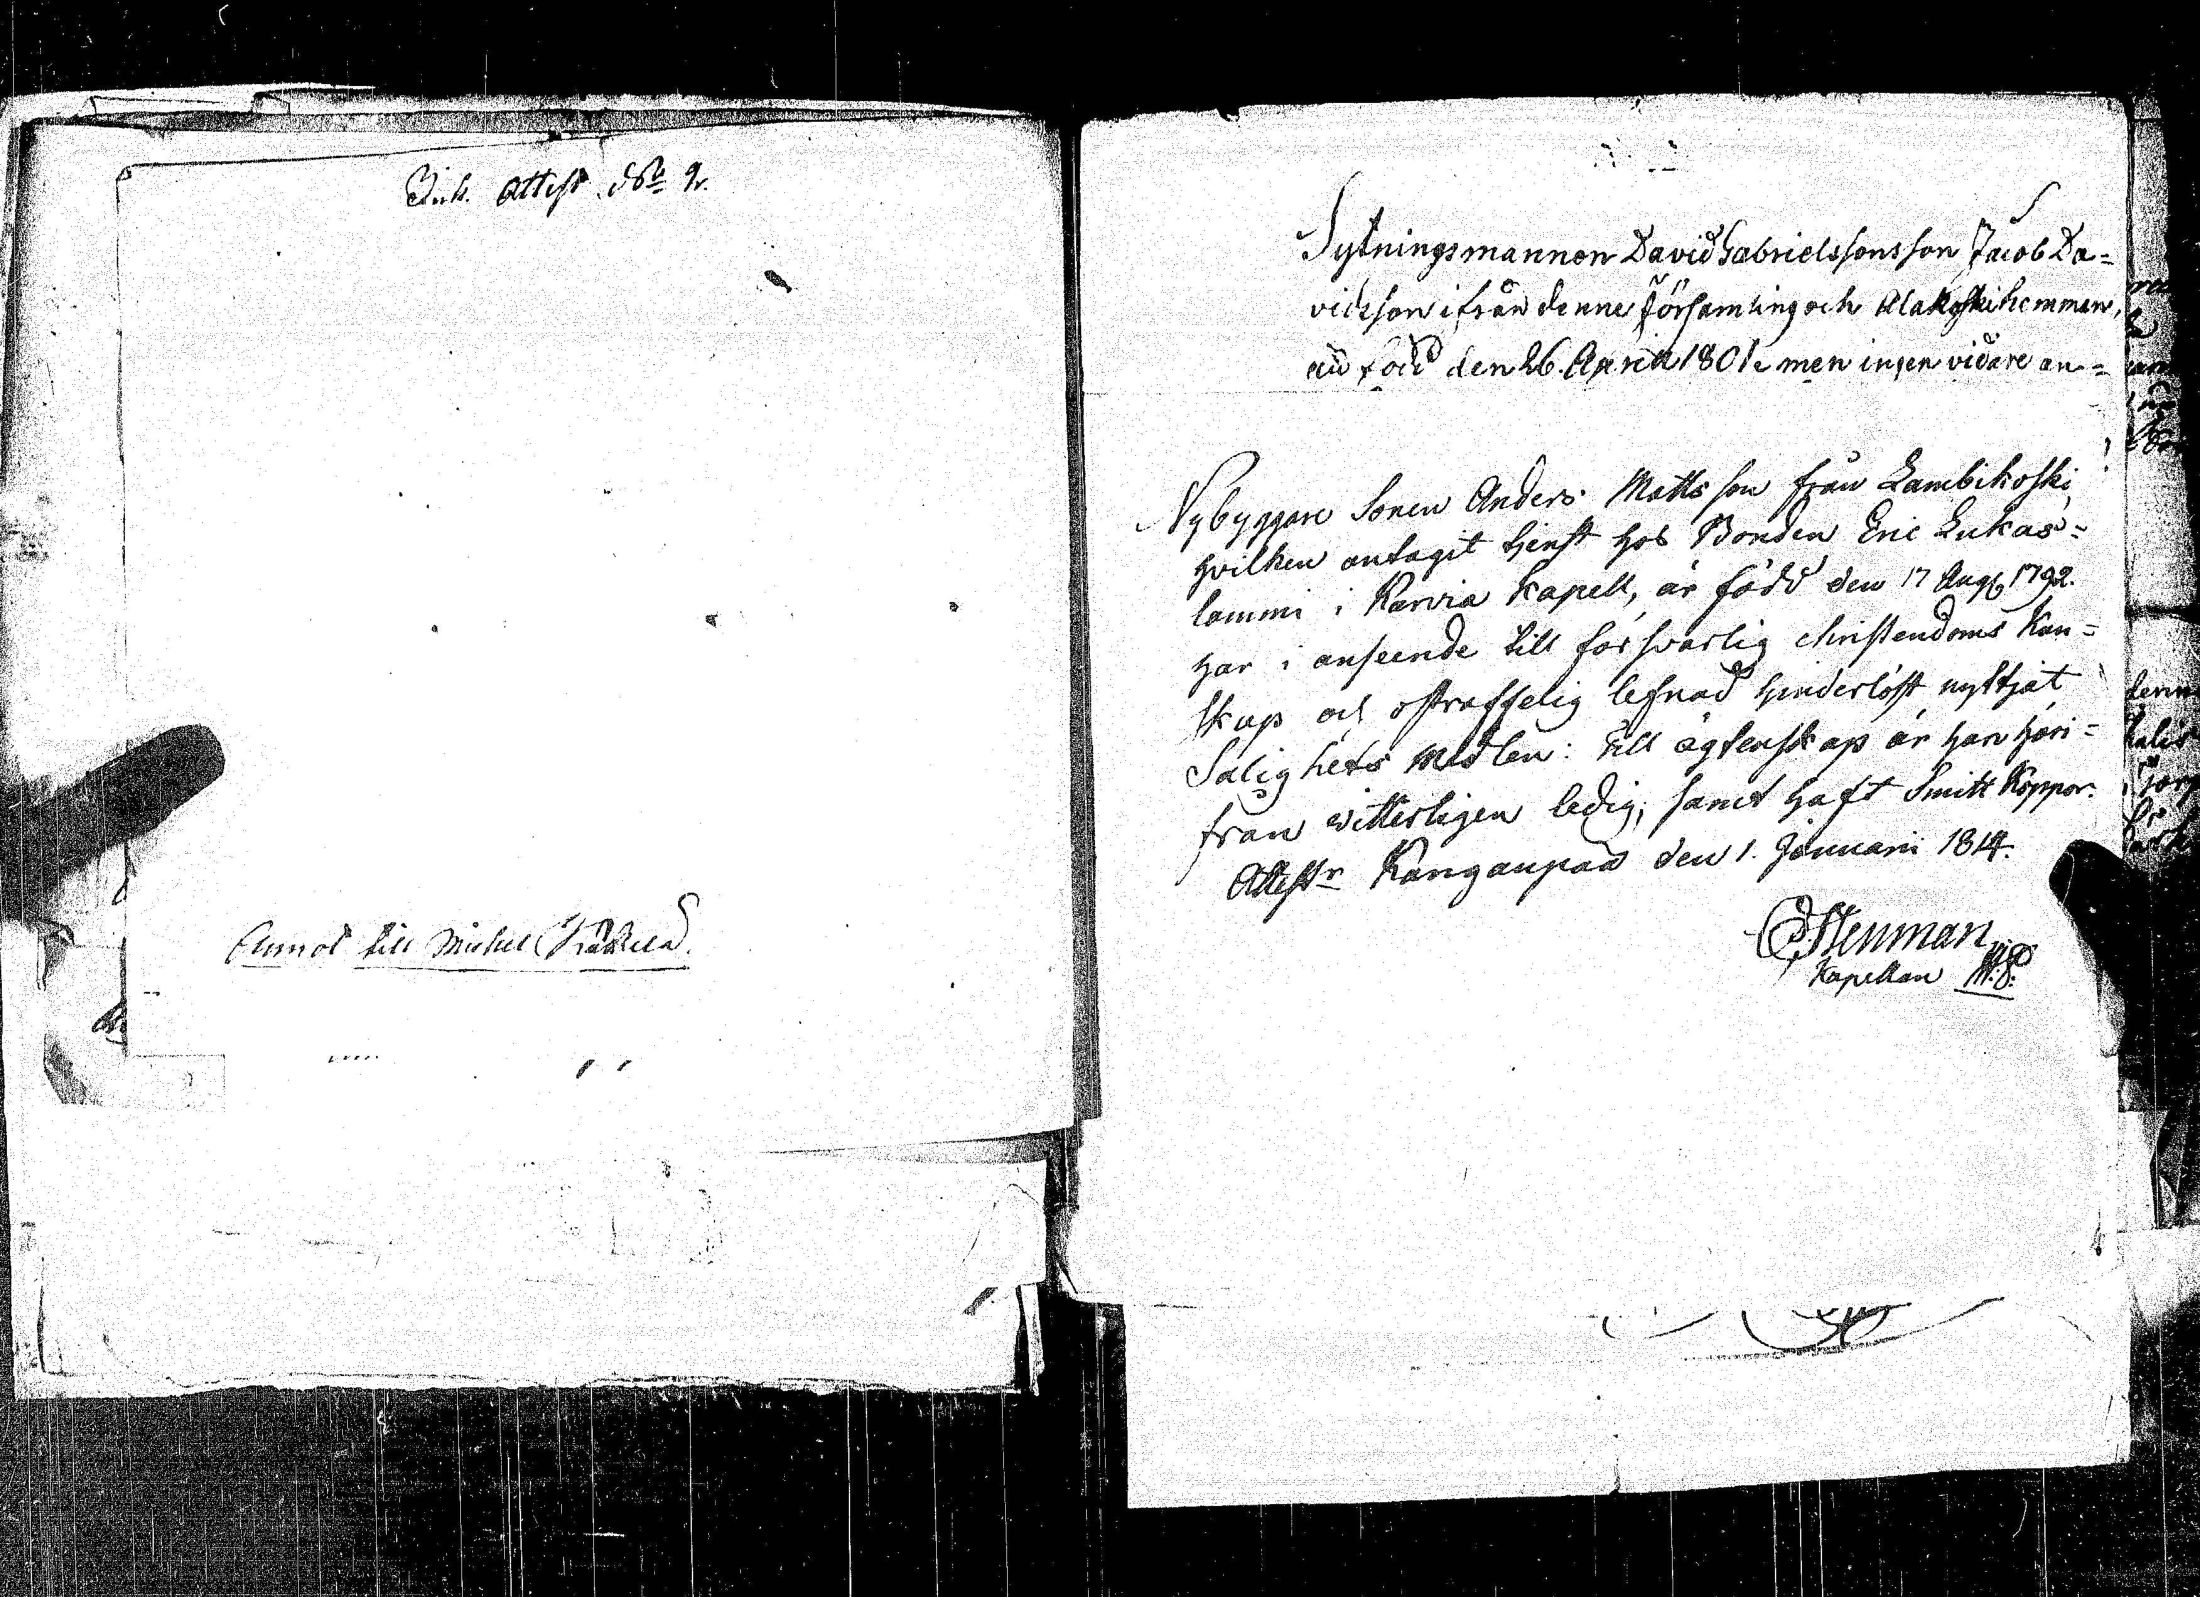 Ink. Attest No 9.
Annot till Michel
Sytningsmannen David Gabrielssons son Jacob Da=
vidsson ifrån denne Församling och Alakoski hemman,
är född den 26. April 1801. men ingen vidare an=
Nybyggare Sonen Anders Mattsson från Lambikoski
hvilken antagit tjenst hos Bonden Eric Lukas=
lammi i Karvia Kapell, är född den 17 Aug. 1792.
har i anseende till försvarlig christendoms Kun=
skap och ostraffelig lefnad hinderlöst nyttjat
Salighets medlen: Till ägtenskap är han häri=
från witterligen ledig; samt haft Smitt Koppor.
Attestr Kanganpää den 1. Januarii 1814.
Stenman
Kapellan